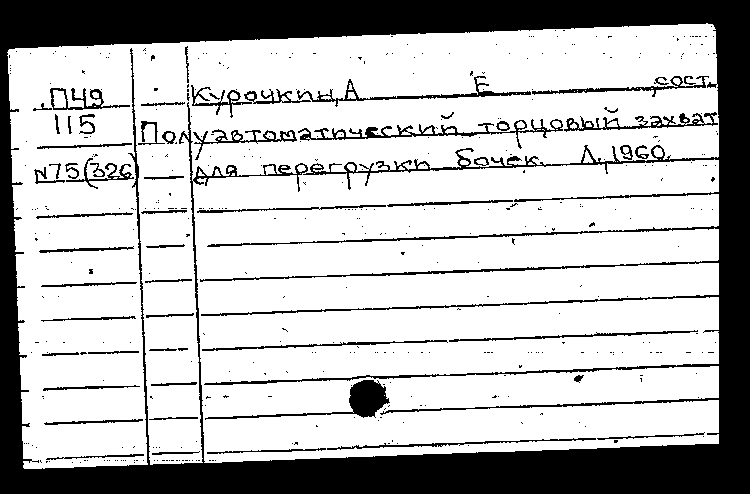 П49 Курочкин, А Е , сост.
115 Полуавтоматический торцовый захват
N75(326) для перегрузки бочек. Л., 1960.